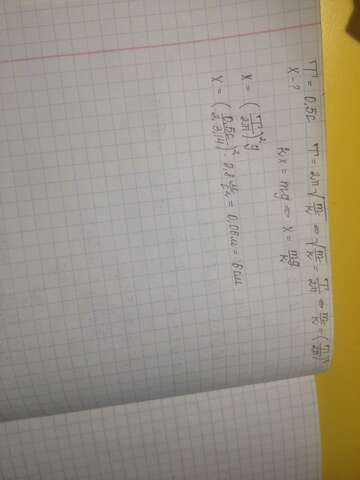 T = 0,5с    T = 2π√(m/k) ⇔ √(m/k) = T/2π ⇔ m/k = (T/2π)²
x - ?
kx = mg ⇔ x = mg/k
x = (T/2π)² g
x = (0,5с/2·3,14)² · 9,8 м/с² = 0,06м = 6см